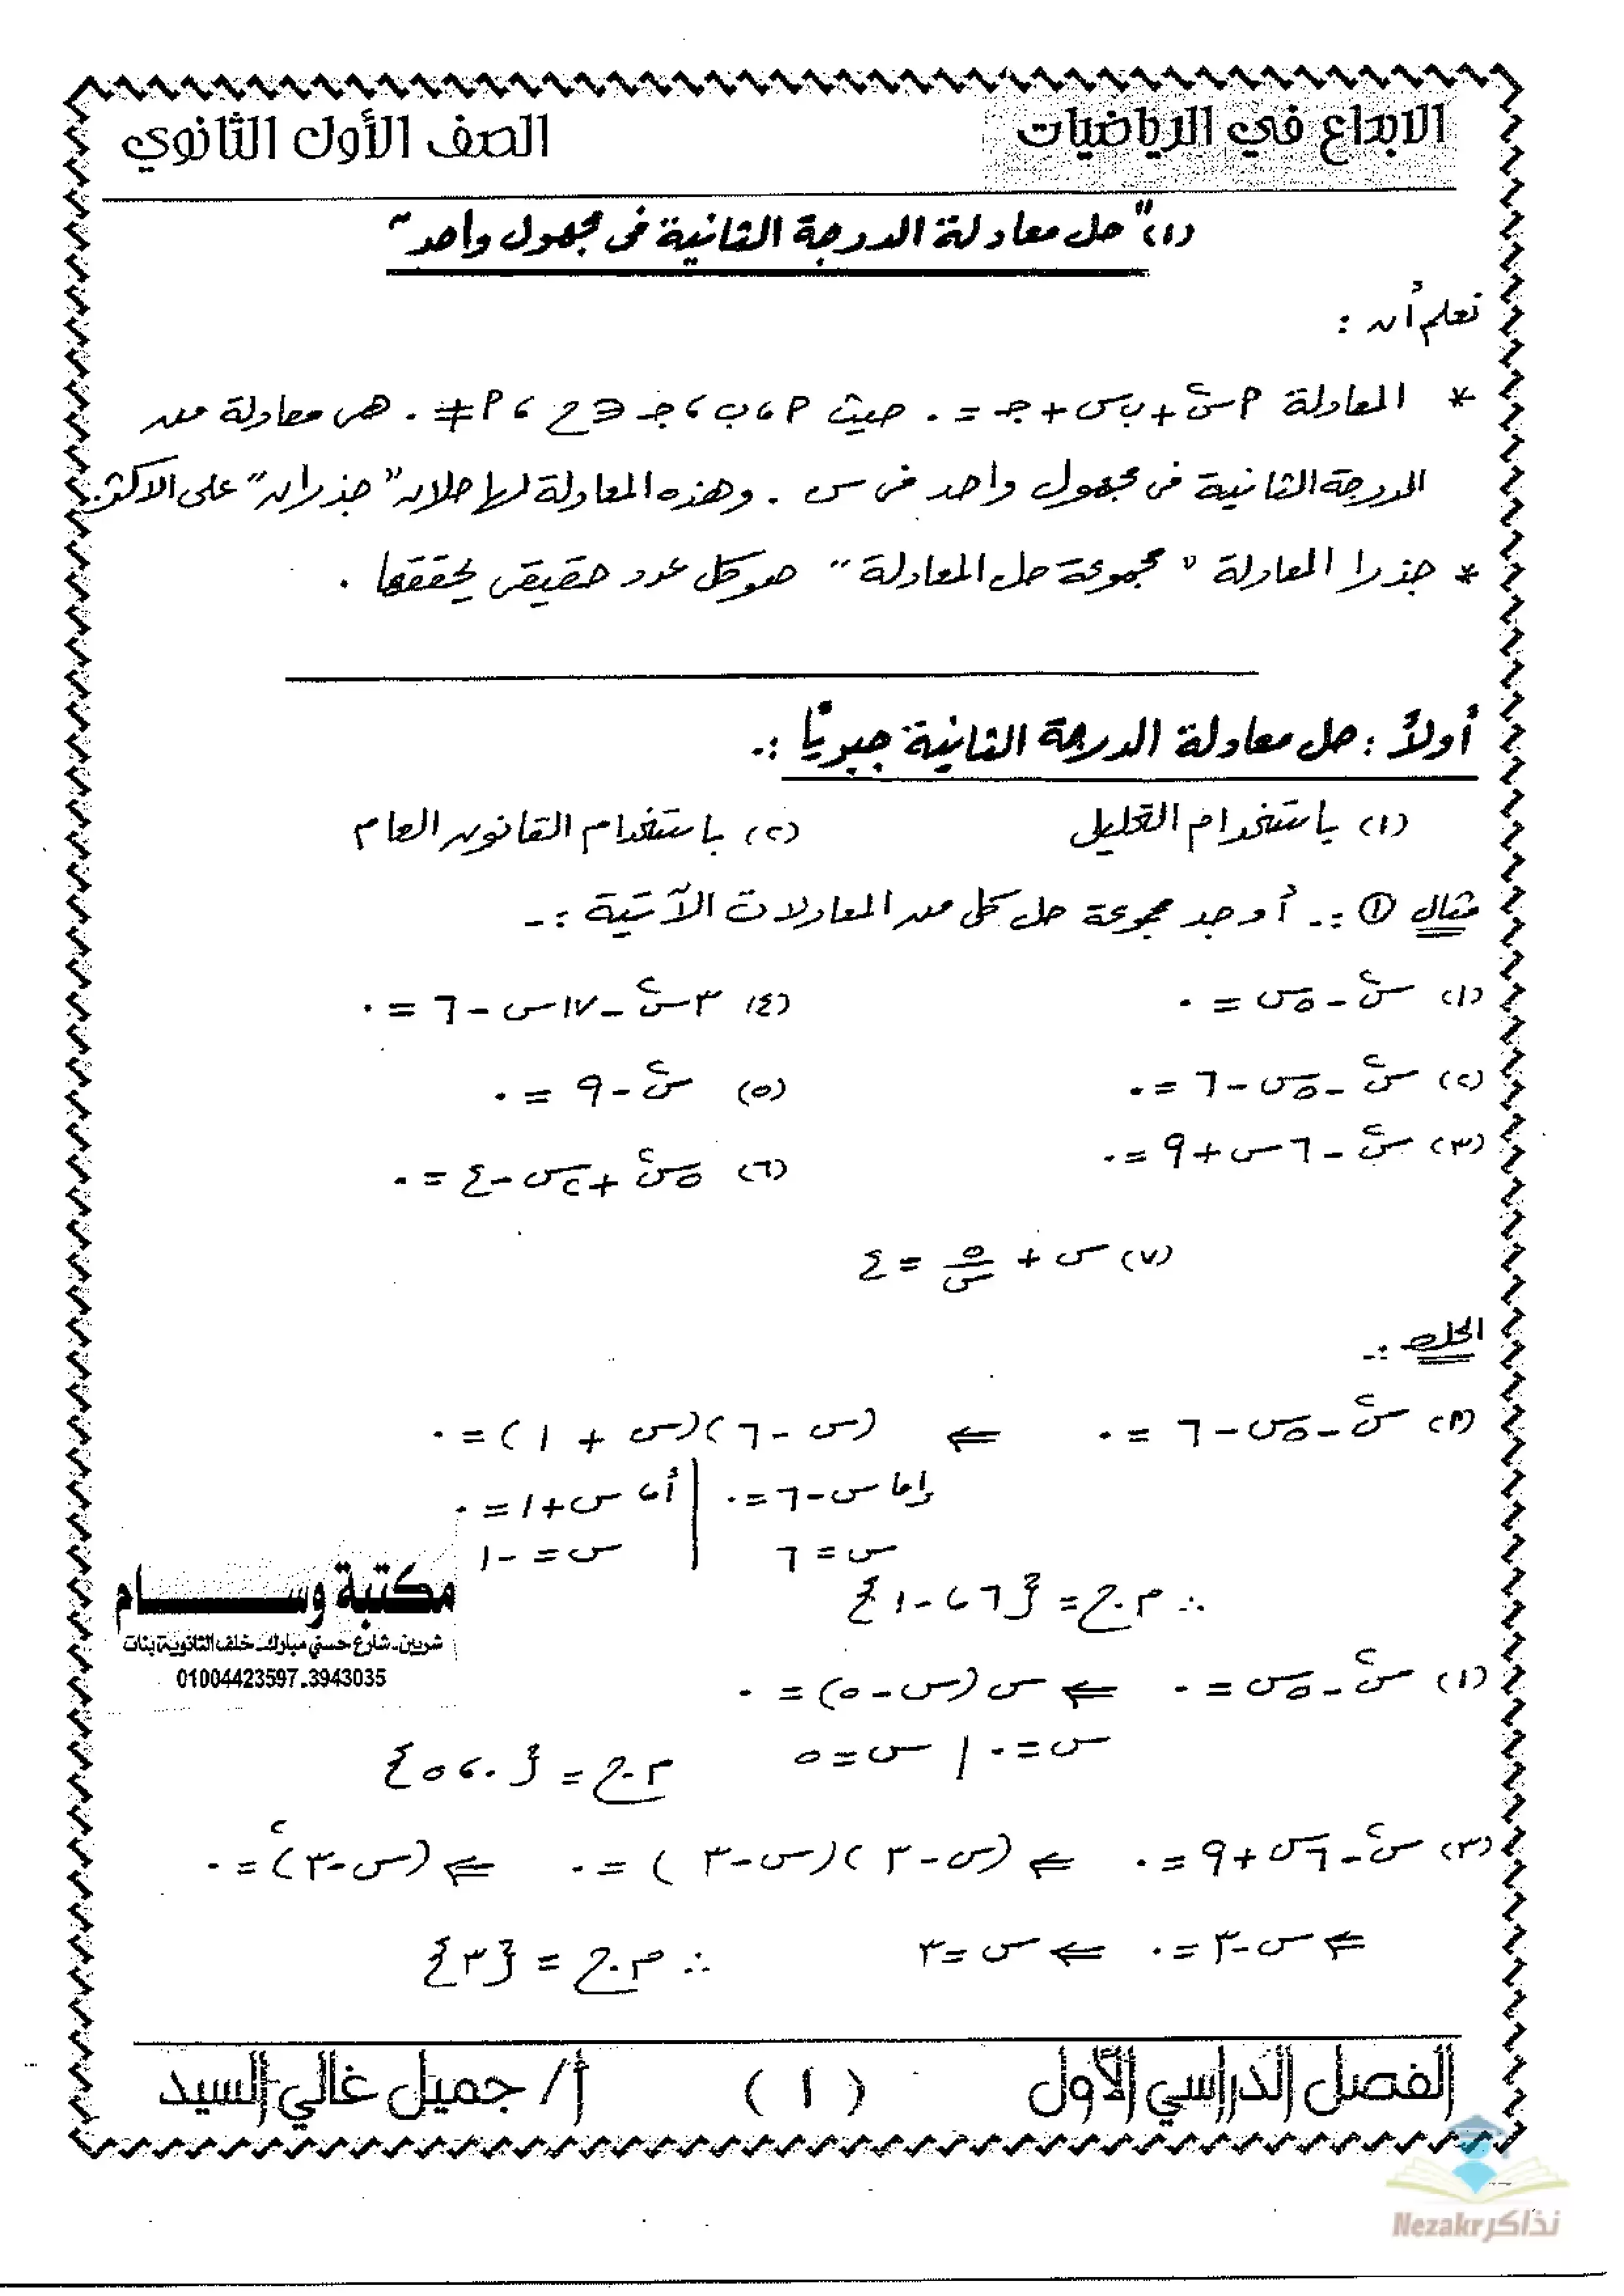 الابداع في الرياضيات
الصف الأول الثانوي
(١) "حل معادلة الدرجة الثانية فى مجهول واحد"
تعلم أن :
* المعادلة ٢س٢ + ب س + جـ = ٠ حيث ٢ ، ب ، جـ ∈ ح ، ٢ ≠ ٠ هى معادلة من
الدرجة الثانية فى مجهول واحد فى س . وهذه المعادلة لها حلان "جذران" على الاكثر.
* جذرا المعادلة " مجموعة حل المعادلة " هو كل عدد حقيقى يحققها .
أولاً : حل معادلة الدرجة الثانية جبريًا :-
(١) باستخدام التحليل
(٢) باستخدام القانون العام
مثال ① :- أوجد مجموعة حل كل من المعادلات الآتية :-
(١) س٢ - ٥س = ٠
(٤) ٣س٢ - ١٧س - ٦ = ٠
(٢) س٢ - ٥س - ٦ = ٠
(٥) س٢ - ٩ = ٠
(٣) س٢ - ٦س + ٩ = ٠
(٦) ٥س٢ + ٢س - ٤ = ٠
(٧) س + ٥/س = ٤
الحل :-
س٢ - ٥س - ٦ = ٠ ⇐ (س - ٦)(س + ١) = ٠
إما س - ٦ = ٠ | أ، س + ١ = ٠
س = ٦ | س = -١
∴ م.ح = {٦ ، -١}
مكتبة وســـــــام
شربين-شارع حسني مبارك-خلف الثانوية بنات
01004423597-3943035
(١) س٢ - ٥س = ٠ ⇐ س(س - ٥) = ٠
س = ٠ | س = ٥
م.ح = {٠ ، ٥}
(٣) س٢ - ٦س + ٩ = ٠ ⇐ (س - ٣)(س - ٣) = ٠ ⇐ (س - ٣)٢ = ٠
⇐ س - ٣ = ٠ ⇐ س = ٣
∴ م.ح = {٣}
الفصل الدراسي الأول
( ١ )
أ/ جميل غالي السيد
نذاكر Nezakr